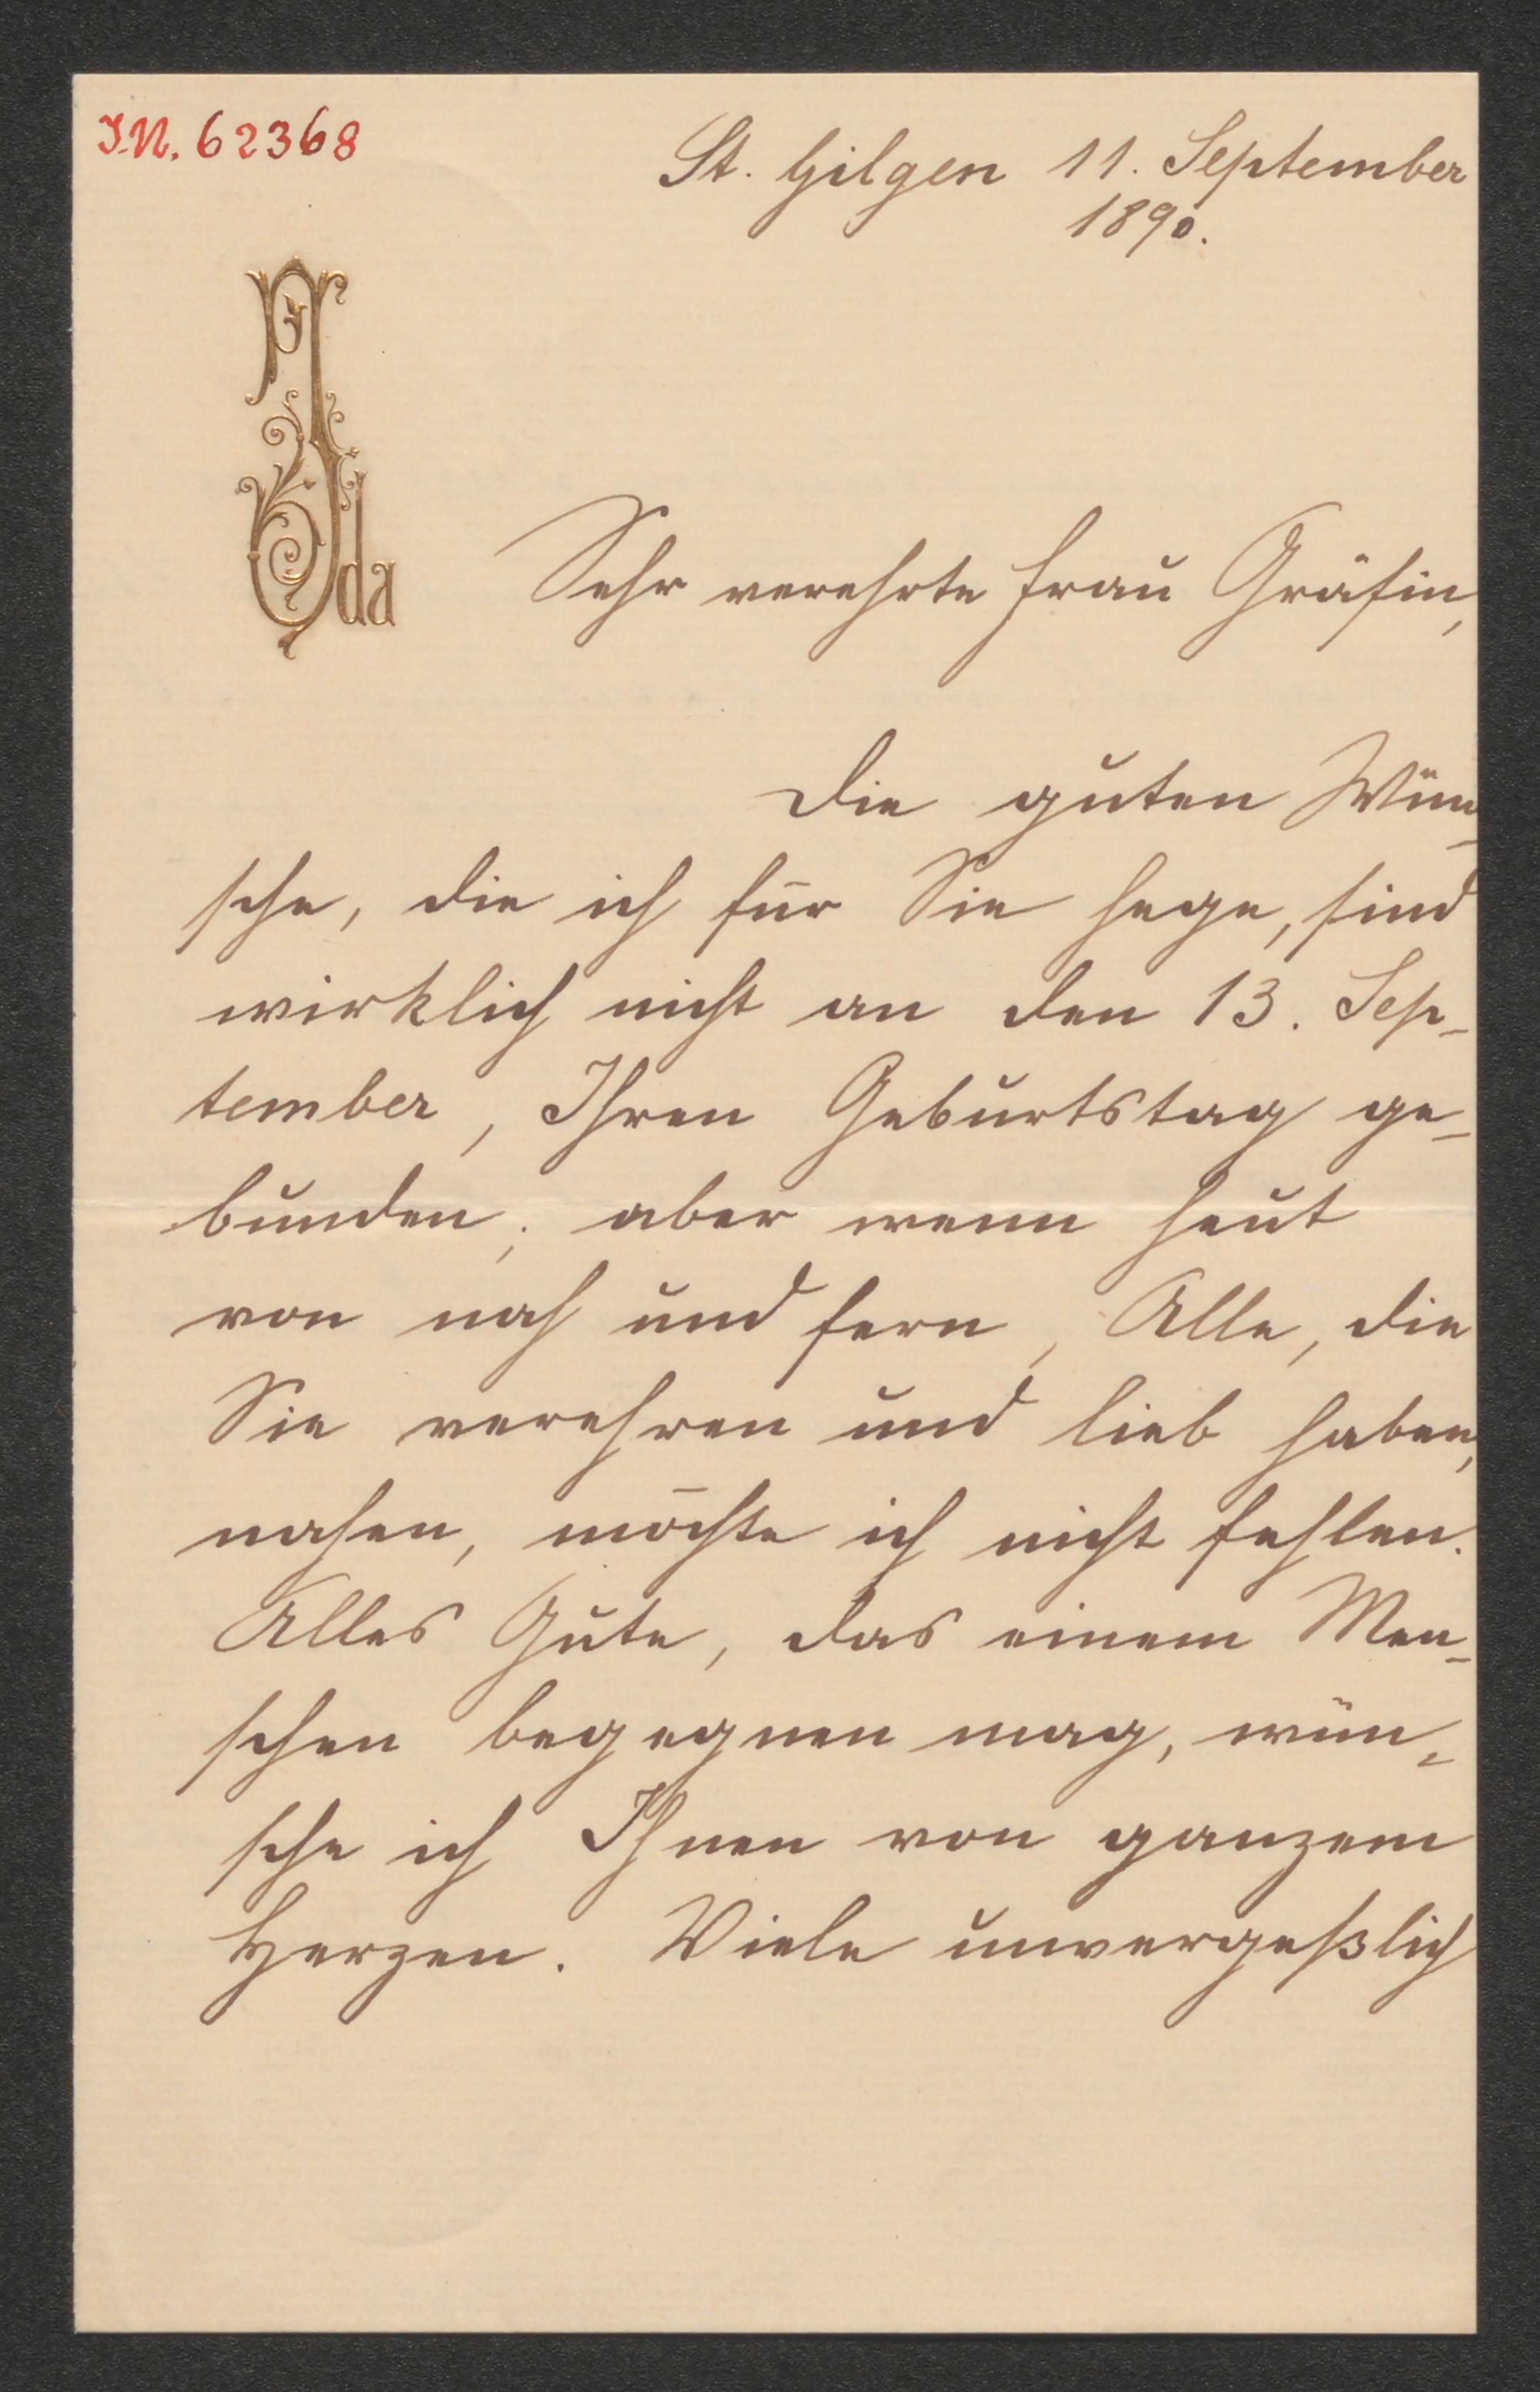 I.N. 62368
St. Gilgen 11. September
1890.
Ida
Sehr verehrte Frau Gräfin,
Die guten Wün-
sche, die ich für Sie hege, sind
wirklich nicht an den 13. Sep-
tember, Ihren Geburtstag ge-
bunden; aber wenn heut
von nah und fern, Alle, die
Sie verehren und lieb haben,
nahen, möchte ich nicht fehlen.
Alles Gute, das einem Men-
schen begegnen mag, wün-
sche ich Ihnen von ganzem
Herzen. Viele unvergeßlich